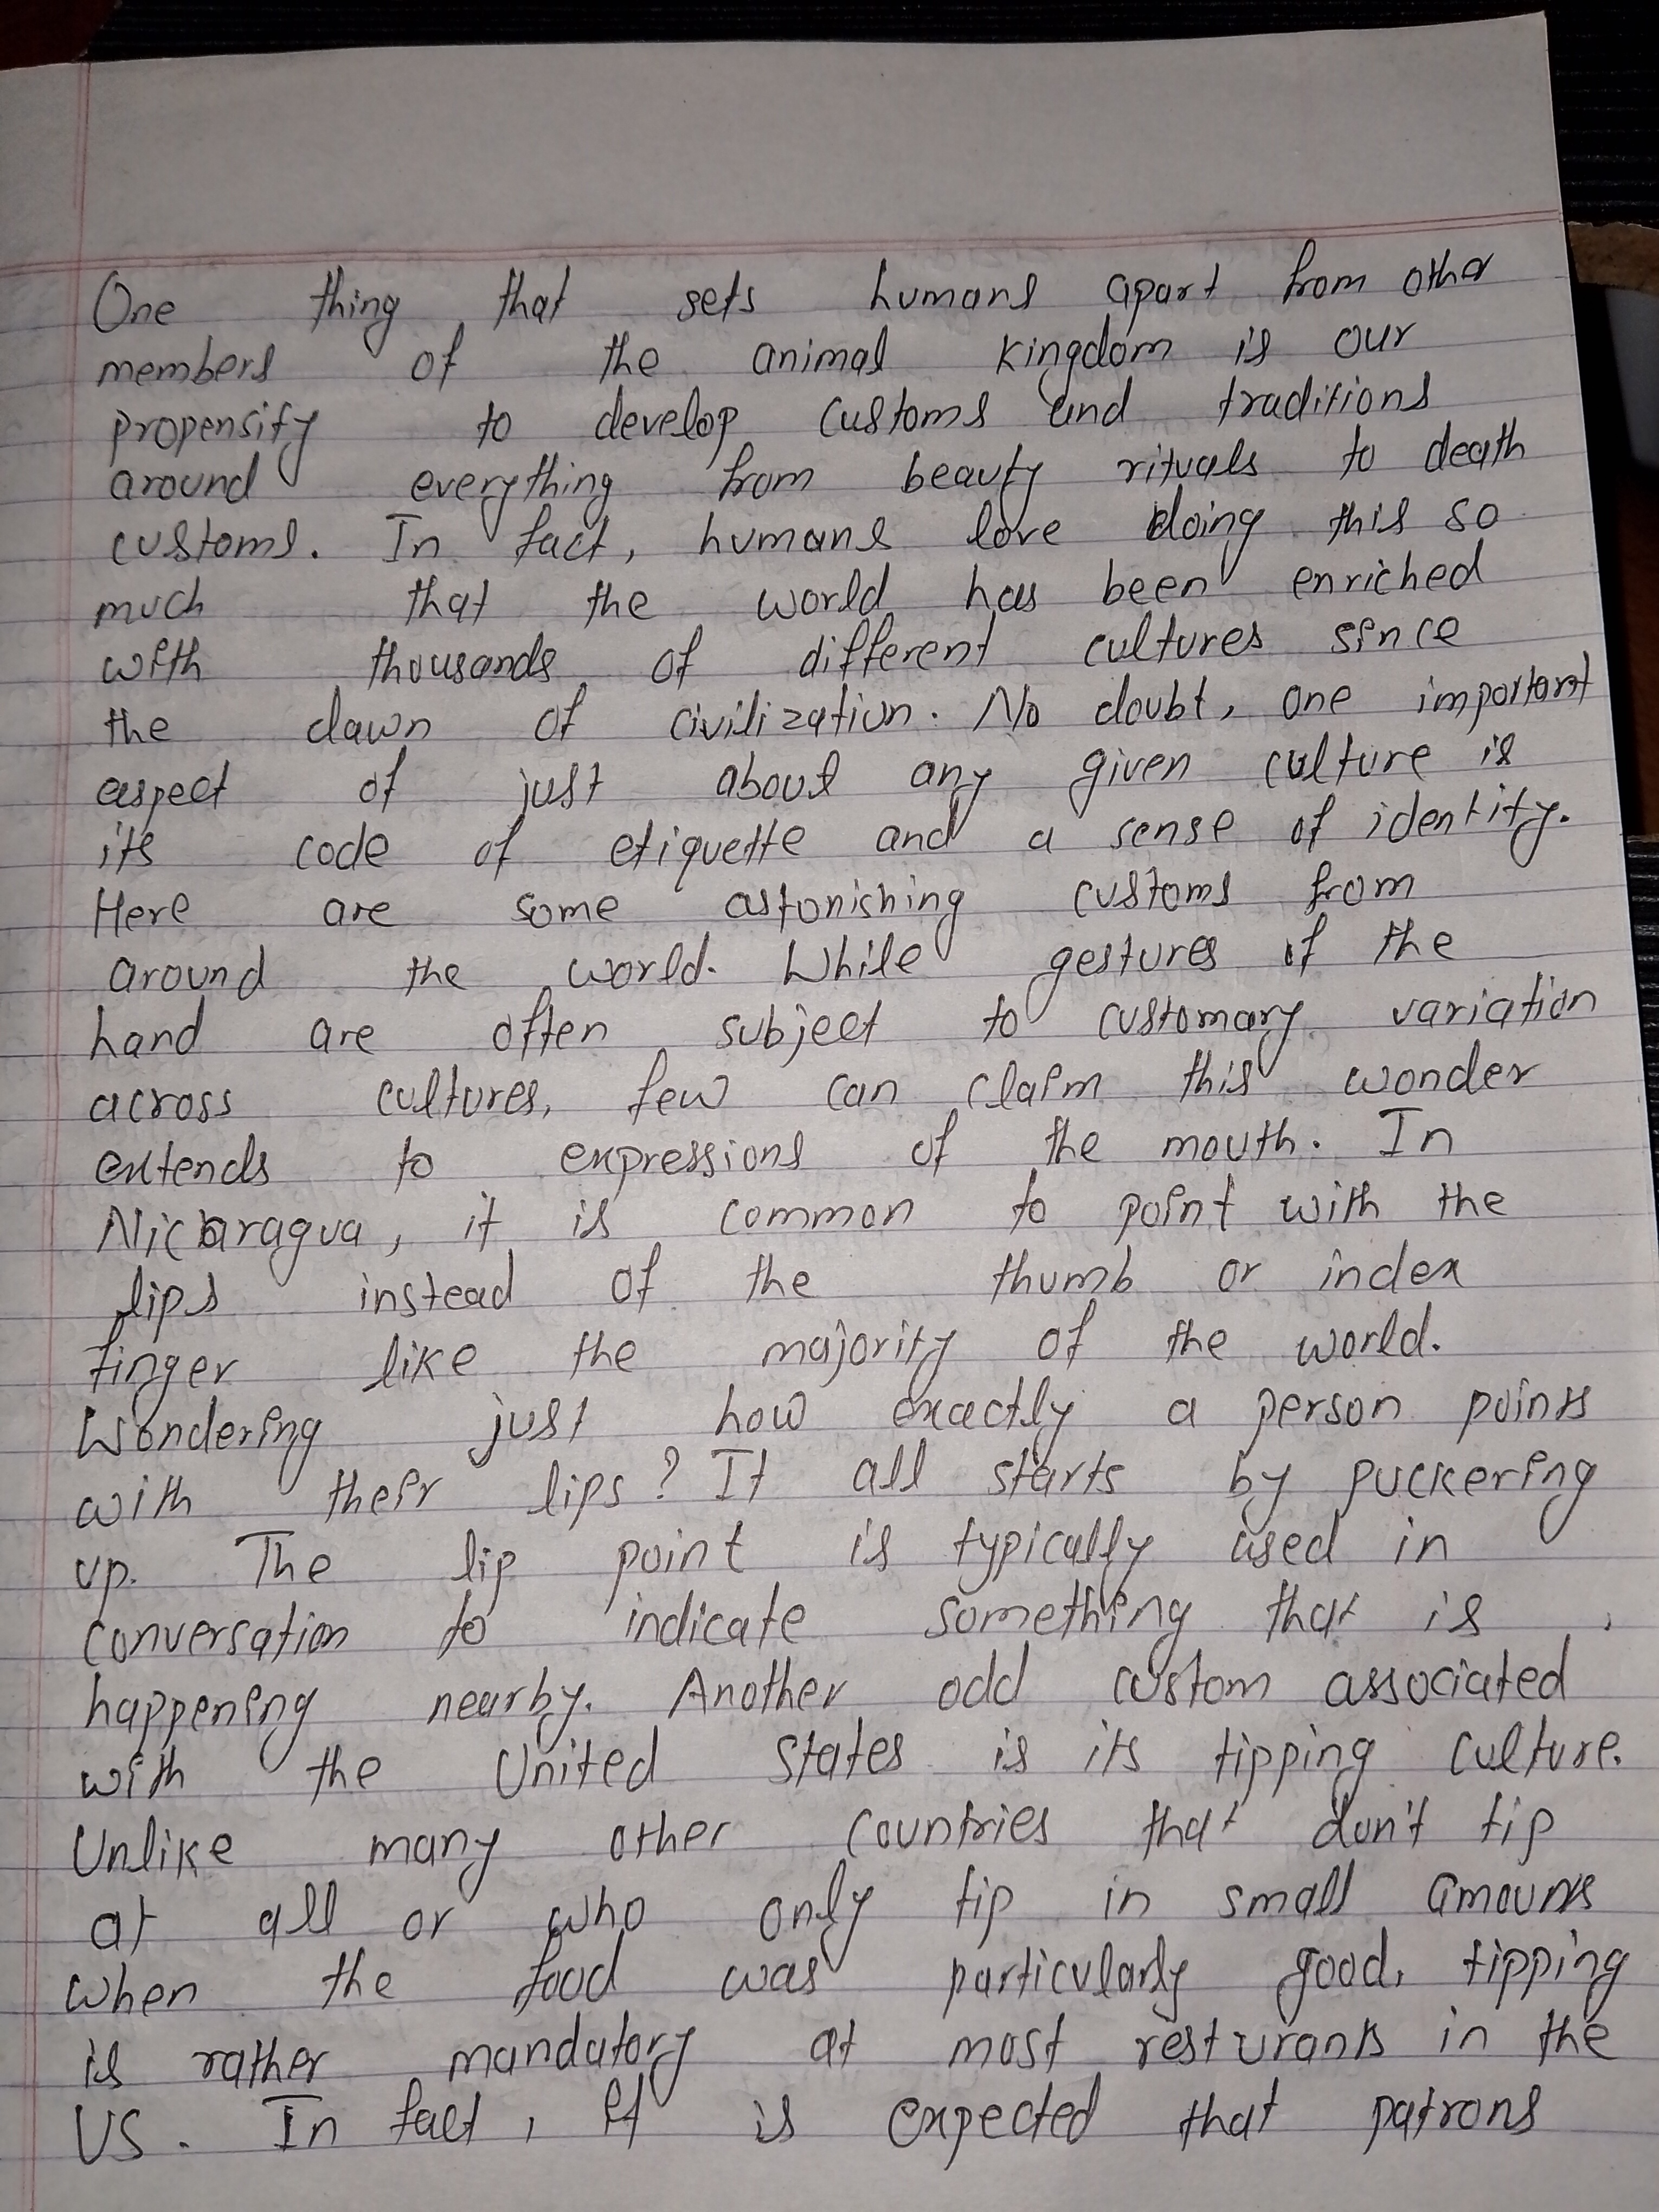 One thing that sets humans apart from other
members of the animal kingdom is our
propensity to develop customs and traditions
around everything from beauty rituals to death
customs. In fact, humans love doing this so
much that the world has been enriched
with thousands of different cultures since
the dawn of civilization. No doubt, one important
aspect of just about any given culture is
its code of etiquette and a sense of identity.
Here are some astonishing customs from
around the world. While gestures of the
hand are often subject to customary variation
across cultures, few can claim this wonder
extends to expressions of the mouth. In
Nicaragua, it is common to point with the
lips instead of the thumb or index
finger like the majority of the world.
Wondering just how exactly a person points
with their lips? It all starts by puckering
up. The lip point is typically used in
conversation to indicate something that is
happening nearby. Another odd custom associated
with the United States is its tipping culture.
Unlike many other countries that don't tip
at all or who only tip in small amounts
when the food was particularly good, tipping
is rather mandatory at most resturants in the
US. In fact, it is expected that patrons